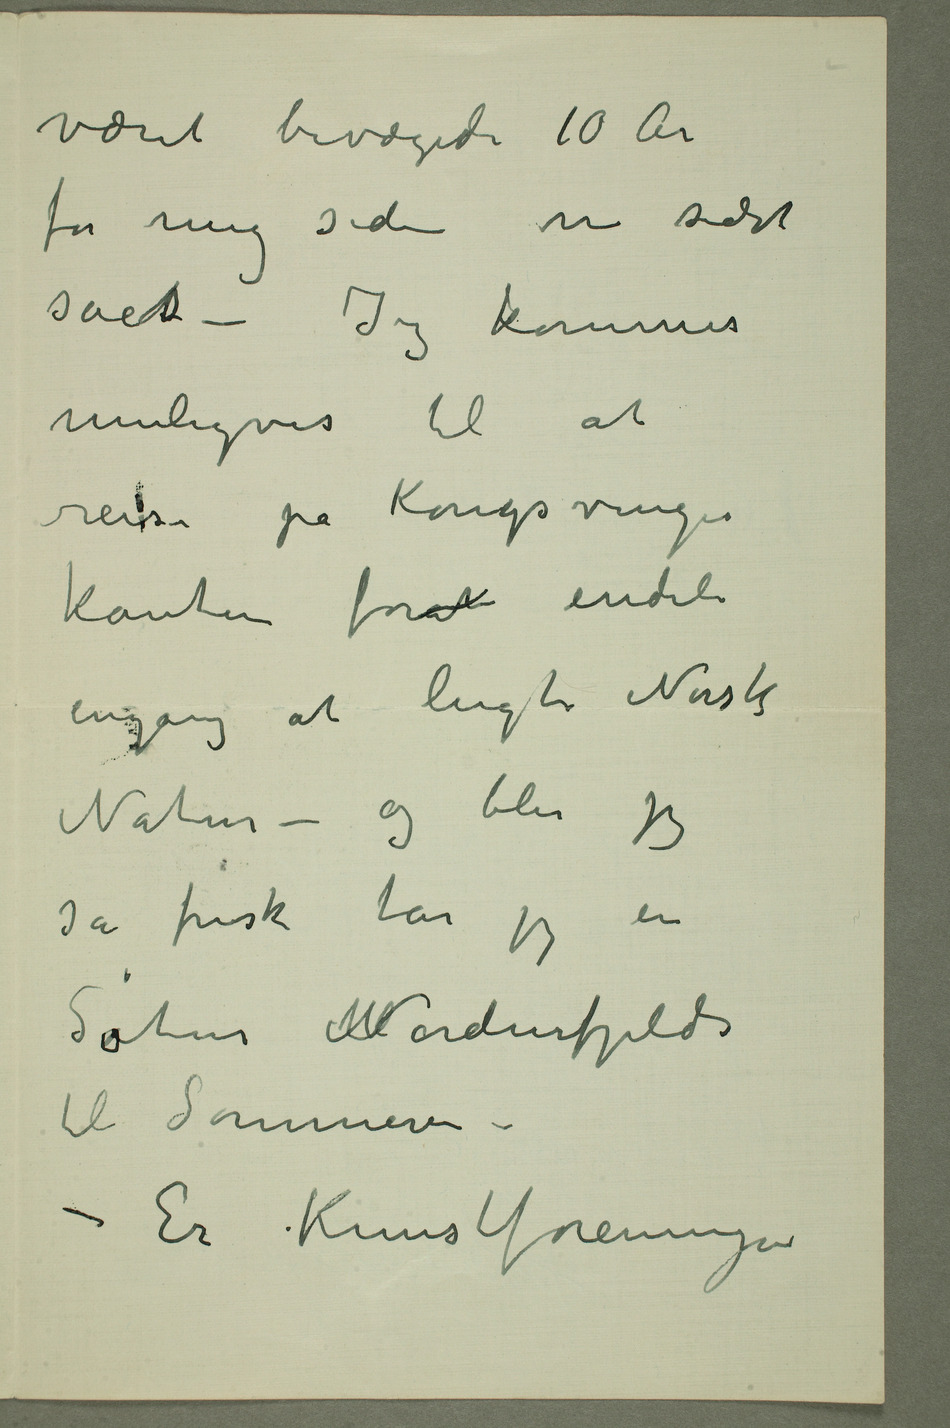 været bevægede 10 År
for mig siden vi sidst
såes – Jeg kommer
muligvis til at
reise på Kongsvinger
kanten for at endeli
engang at lugte Norsk
Natur – og blir jeg
så frisk tar jeg en
Såtur Nordenfjelds
til Sommeren –
– Er Kunstforeningen